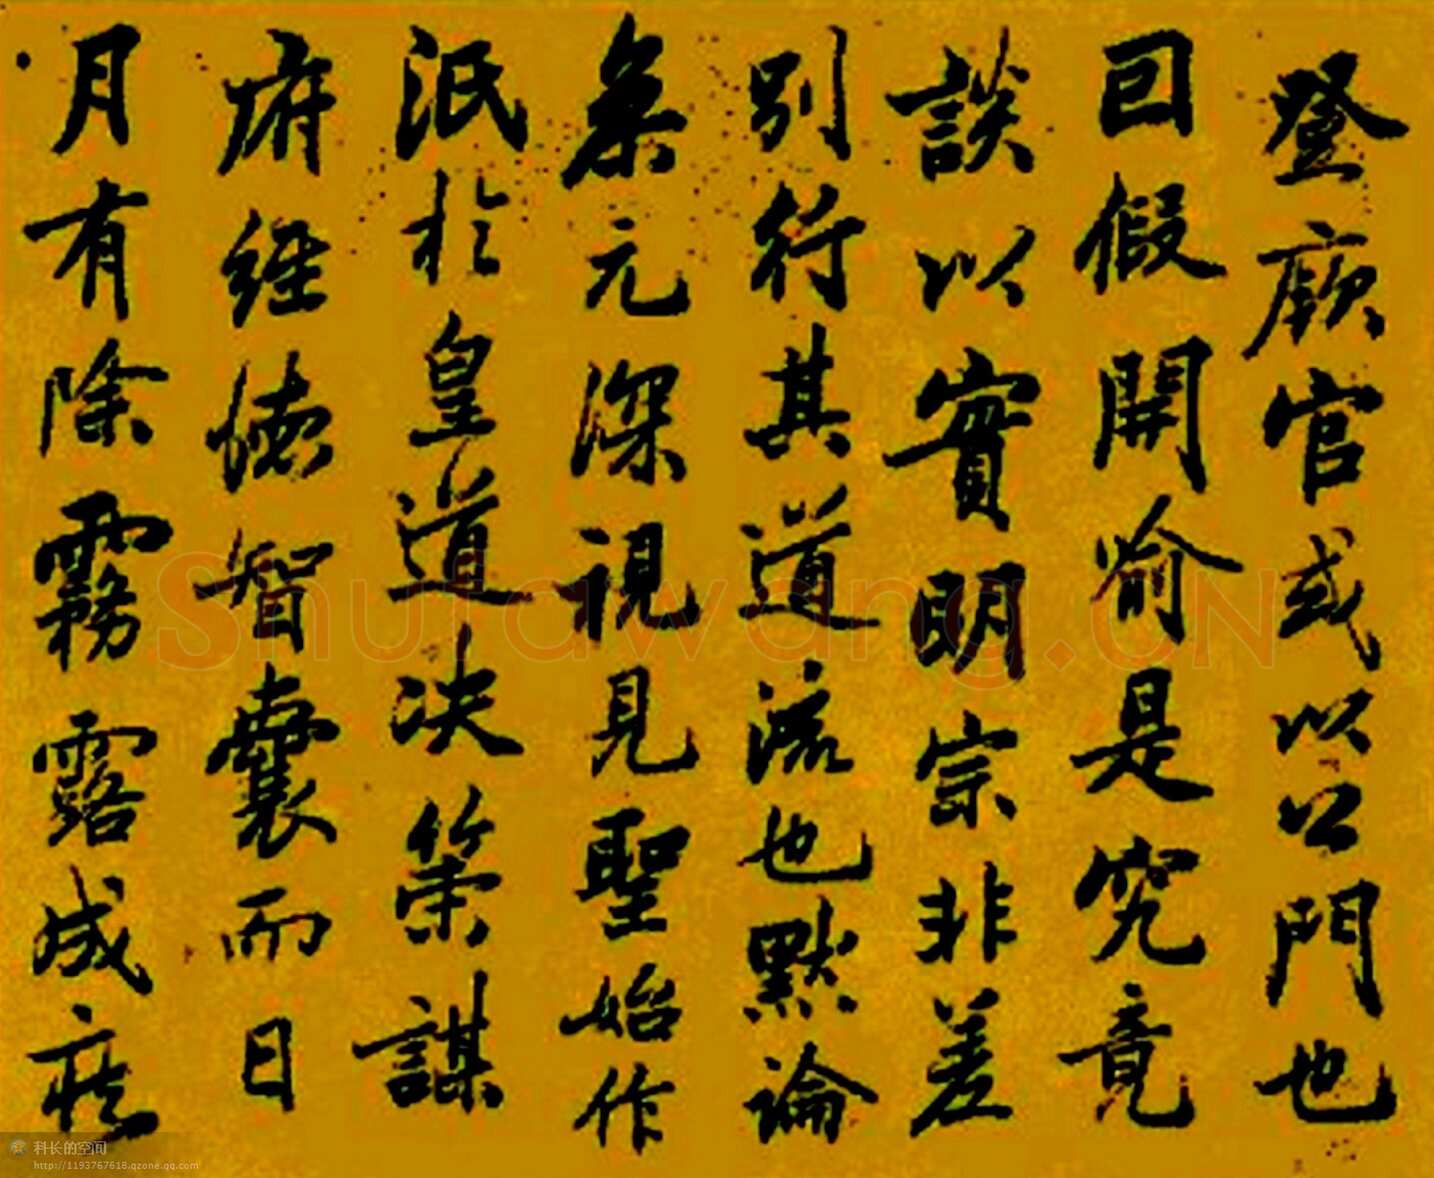 登廟官或以公門也
回假開喻是究竟
談以實明宗非差
別行其道流也默論
參元深視見聖始作
泯於皇道決策謀
府經德智囊而日
月有除霧露成疾
Shufawang.CN
科长的空间
http://1193767618.qzone.qq.com